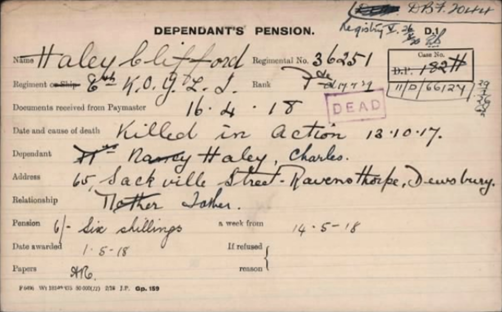 DBF. 2044
DEPENDANT'S PENSION.
Registry V.
D.1
Name Haley Clifford Regimental No. 36251
Case No.
D.P. 182H
11/D/66127
Regiment or Ship K.O.Y.L.I. Rank Pte
Documents received from Paymaster 16.4.18
DEAD
Date and cause of death Killed in action 13.10.17.
Dependant Nancy Haley, Charles.
Address 65, Sackville Street. Ravensthorpe, Dewsbury.
Relationship Mother Father.
Pension 6/- Six shillings a week from 14-5-18
Date awarded 1.5-18 If refused
Papers reason
Gp. 159